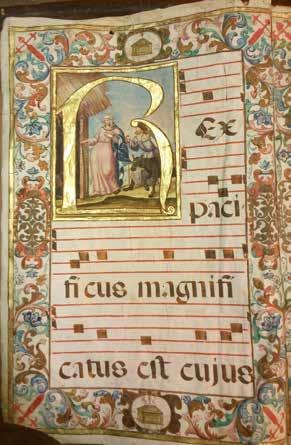 R
ex
paci
ficus magnifi
catus est cujus